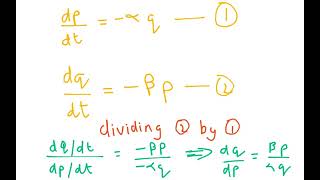 dp/dt = -αq — ①
dq/dt = -βp — ②
dividing ② by ①
(dq/dt)/(dp/dt) = -βp/-αq ⇒ dq/dp = βp/αq